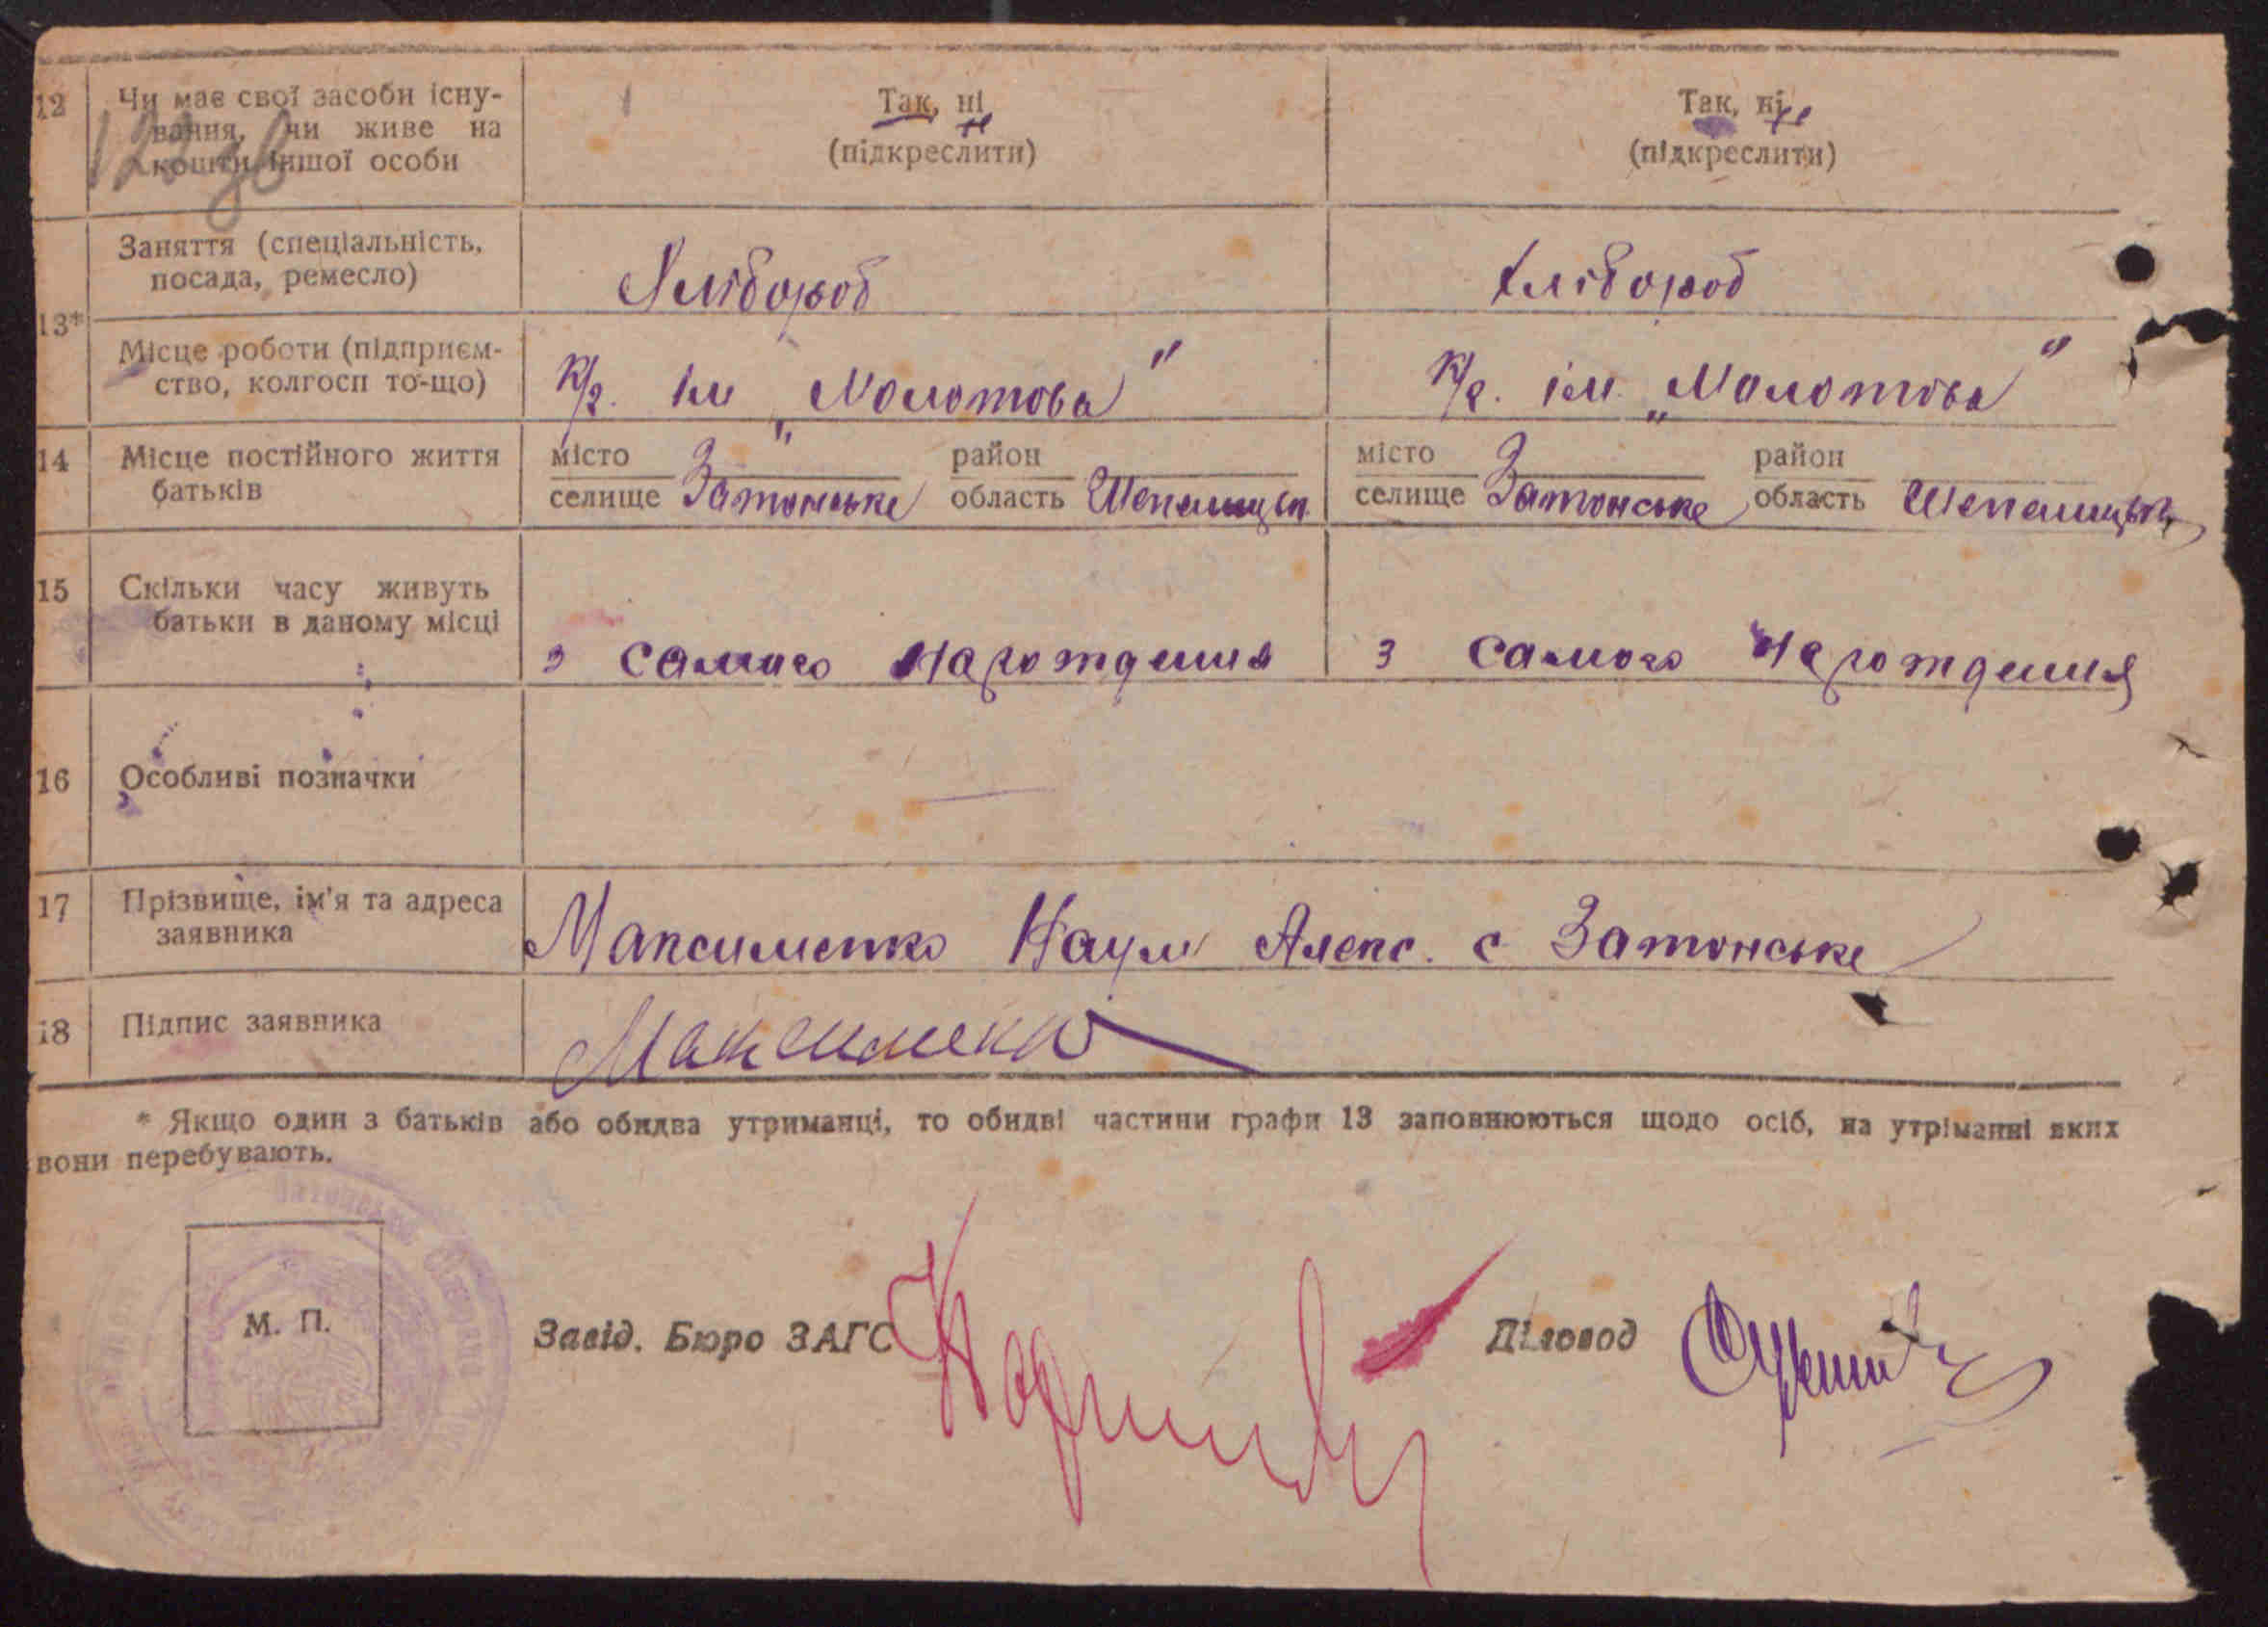 12 Чи має свої засоби існу-
вання, чи живе на
кошти іншої особи
Так, ні
(підкреслити)
Так, ні
(підкреслити)
13*
Заняття (спеціальність,
посада, ремесло)
Хлібороб
Хлібороб
Місце роботи (підприєм-
ство, колгосп то-що)
к/г. ім „Молотова"
к/г. ім. „Молотова"
14 Місце постійного життя
батьків
місто
селище Затонське
район
область
місто
селище Затонське
район
область
15 Скільки часу живуть
батьки в даному місці
з самого нарождения
з самого нарождения
16 Особливі позначки
17 Прізвище, ім'я та адреса
заявника
Максименко Наум Алекс. с Затонське
18 Підпис заявника
* Якщо один з батьків або обидва утриманці, то обидві частини графи 13 заповнюються щодо осіб, на утріманні яких
вони перебувають.
М. П.
Завід. Бюро ЗАГС
Діловод